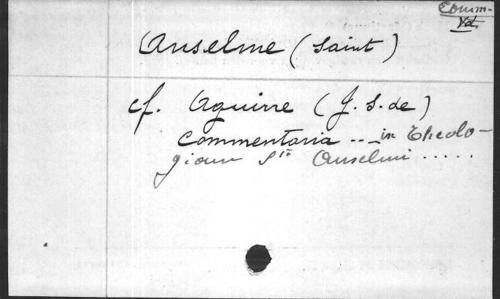 Comm-
Va
Anselme (Saint)
cf. Aguirre (J. S. de)
Commentaria ... in Theolo-
giam Sti Anselmi .....